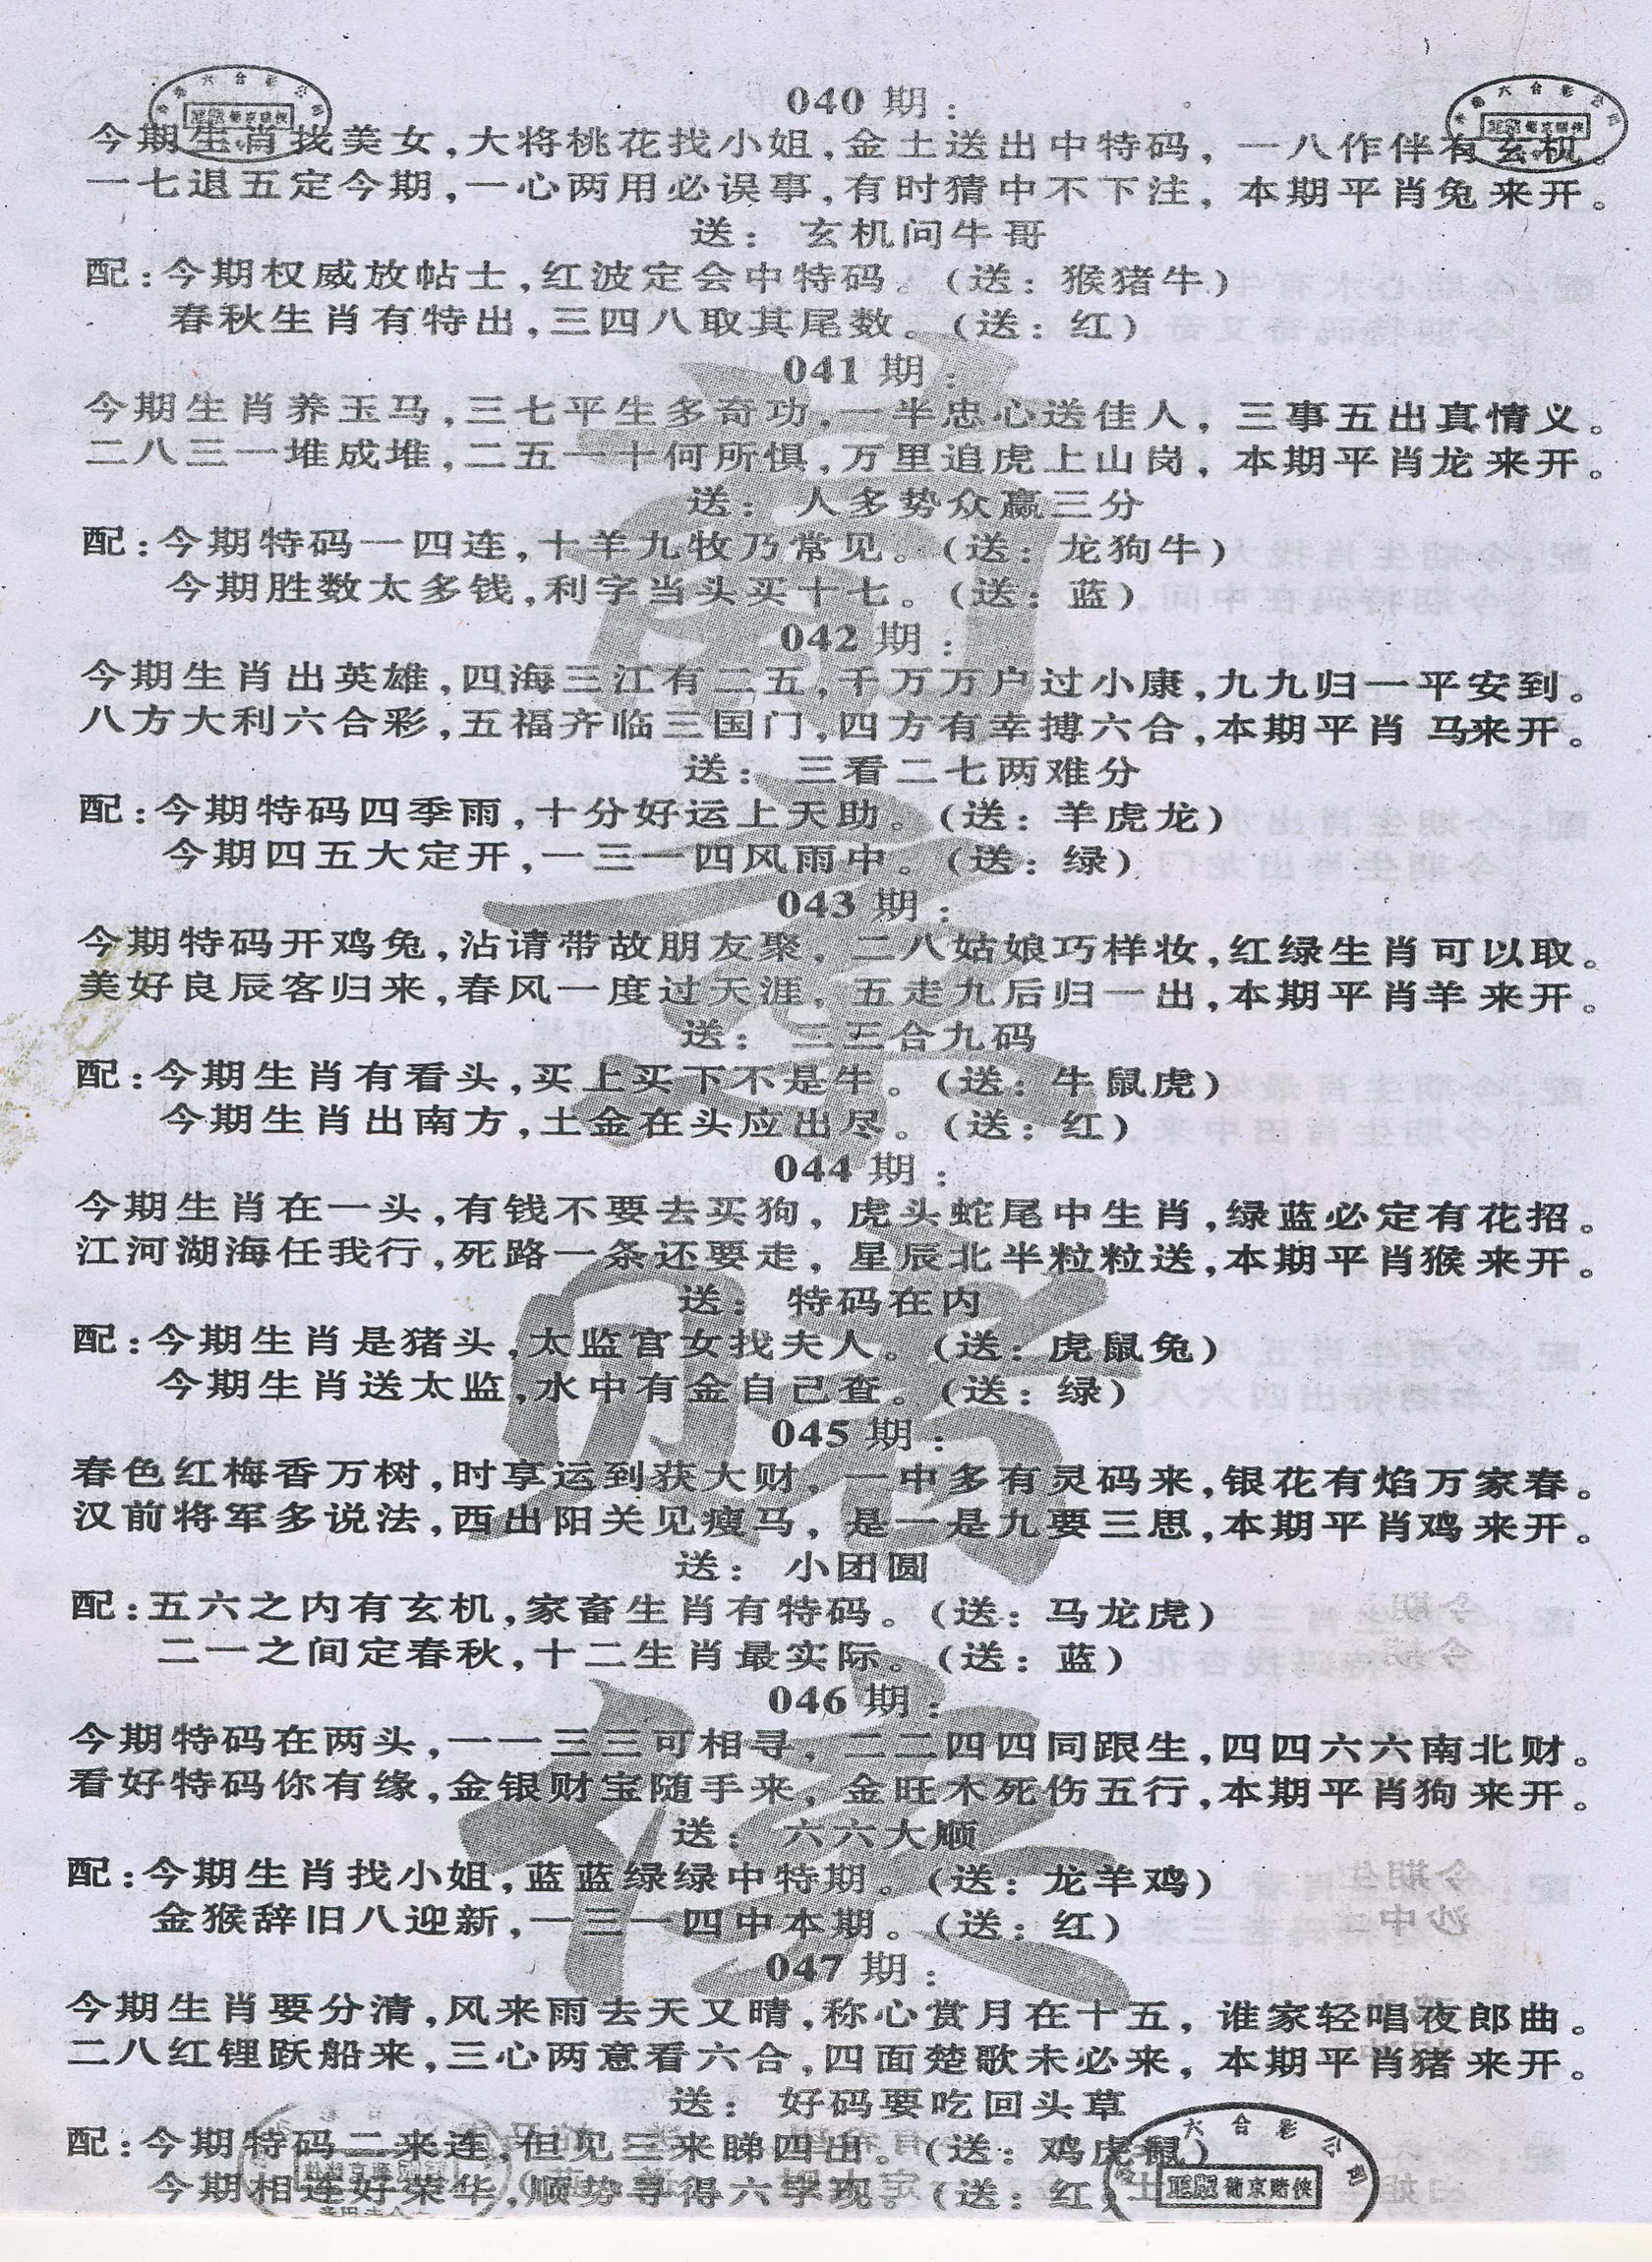 040 期：
今期生肖找美女，大将桃花找小姐，金土送出中特码，一八作伴有玄机。
一七退五定今期，一心两用必误事，有时猜中不下注，本期平肖兔来开。
送：玄机问牛哥
配：今期权威放帖士，红波定会中特码。（送：猴猪牛）
春秋生肖有特出，三四八取其尾数。（送：红）
041 期：
今期生肖养玉马，三七平生多奇功，一半忠心送佳人，三事五出真情义。
二八三一堆成堆，二五一十何所惧，万里追虎上山岗，本期平肖龙来开。
送：人多势众赢三分
配：今期特码一四连，十羊九牧乃常见。（送：龙狗牛）
今期胜数太多钱，利字当头买十七。（送：蓝）
042 期：
今期生肖出英雄，四海三江有二五，千万万户过小康，九九归一平安到。
八方大利六合彩，五福齐临三国门，四方有幸搏六合，本期平肖马来开。
送：三看二七两难分
配：今期特码四季雨，十分好运上天助。（送：羊虎龙）
今期四五大定开，一三一四风雨中。（送：绿）
043 期：
今期特码开鸡兔，沾请带故朋友聚，二八姑娘巧样妆，红绿生肖可以取。
美好良辰客归来，春风一度过天涯，五走九后归一出，本期平肖羊来开。
送：二三合九码
配：今期生肖有看头，买上买下不是牛。（送：牛鼠虎）
今期生肖出南方，土金在头应出尽。（送：红）
044 期：
今期生肖在一头，有钱不要去买狗，虎头蛇尾中生肖，绿蓝必定有花招。
江河湖海任我行，死路一条还要走，星辰北半粒粒送，本期平肖猴来开。
送：特码在内
配：今期生肖是猪头，太监宫女找夫人。（送：虎鼠兔）
今期生肖送太监，水中有金自己查。（送：绿）
045 期：
春色红梅香万树，时享运到获大财，一中多有灵码来，银花有焰万家春。
汉前将军多说法，西出阳关见瘦马，是一是九要三思，本期平肖鸡来开。
送：小团圆
配：五六之内有玄机，家畜生肖有特码。（送：马龙虎）
二一之间定春秋，十二生肖最实际。（送：蓝）
046 期：
今期特码在两头，一一三三可相寻，二二四四同跟生，四四六六南北财。
看好特码你有缘，金银财宝随手来，金旺木死伤五行，本期平肖狗来开。
送：六六大顺
配：今期生肖找小姐，蓝蓝绿绿中特期。（送：龙羊鸡）
金猴辞旧八迎新，一三一四中本期。（送：红）
047 期：
今期生肖要分清，风来雨去天又晴，称心赏月在十五，谁家轻唱夜郎曲。
二八红锂跃船来，三心两意看六合，四面楚歌未必来，本期平肖猪来开。
送：好码要吃回头草
配：今期特码二来连，但见三来睇四出。（送：鸡虎鼠）
今期相连好荣华，顺势寻得六字现。（送：红）
六合彩
葡京赌侠